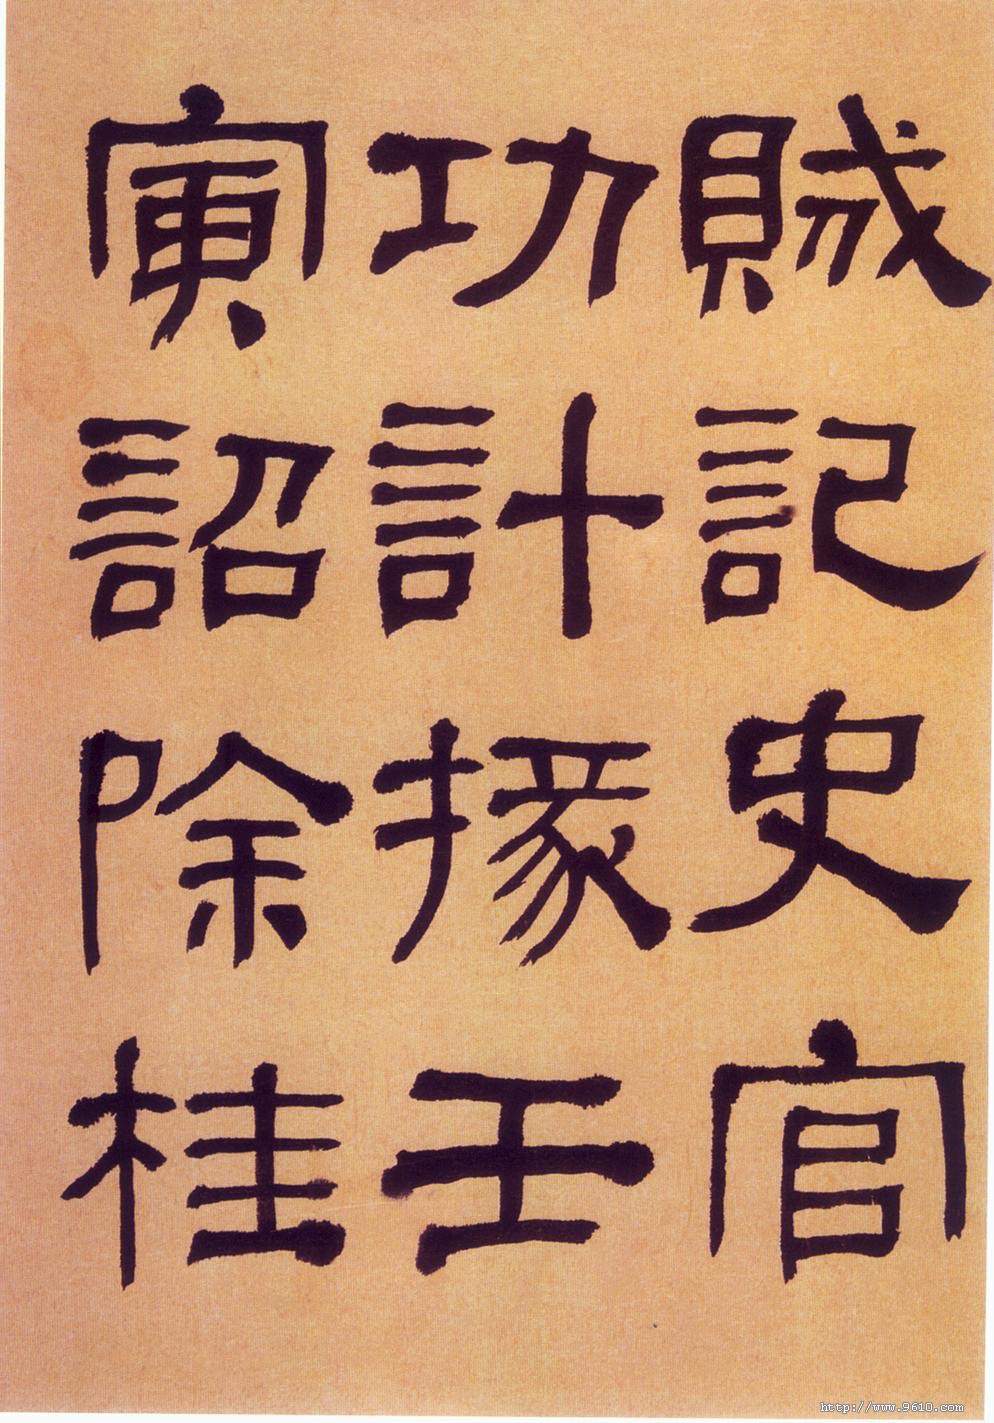 賊記史官
功計掾壬
寅詔除桂
http://www.9610.com